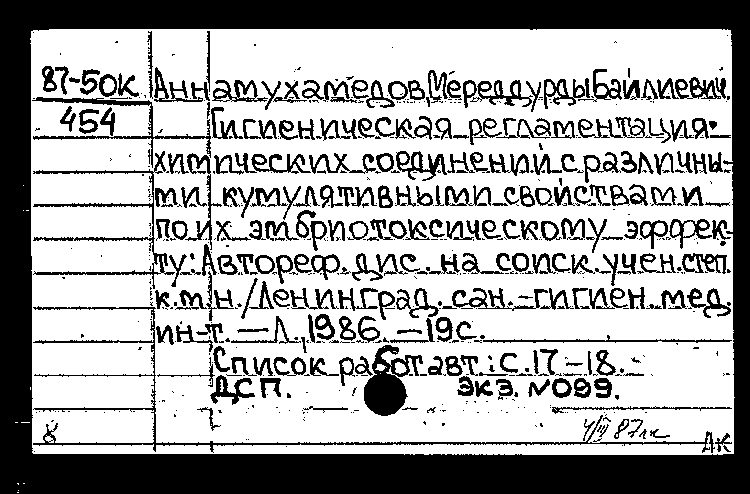 87-50К Аннамухамедов, Мереддурды Байлиевич.
454 Гигиеническая регламентация
химических соединений с различны-
ми кумулятивными свойствами
по их эмбриотоксическому эффек-
ту: Автореф. дис. на соиск. учен. степ.
к.м.н. / Ленинград. сан.-гигиен. мед.
ин-т. — Л., 1986. — 19 с.
Список работ авт.: с. 17-18. -
ДСП. экз. №099.
8 87
АК